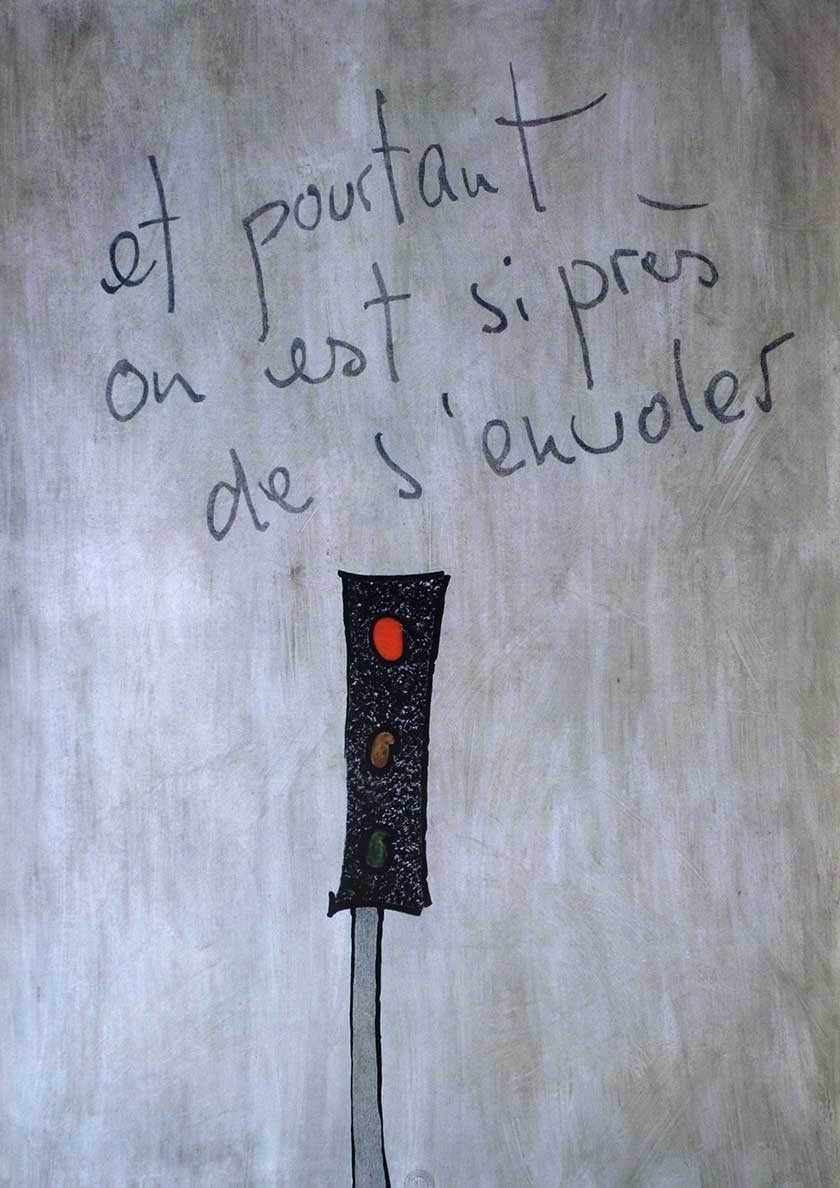 et pourtant
on est si près
de s'envoler